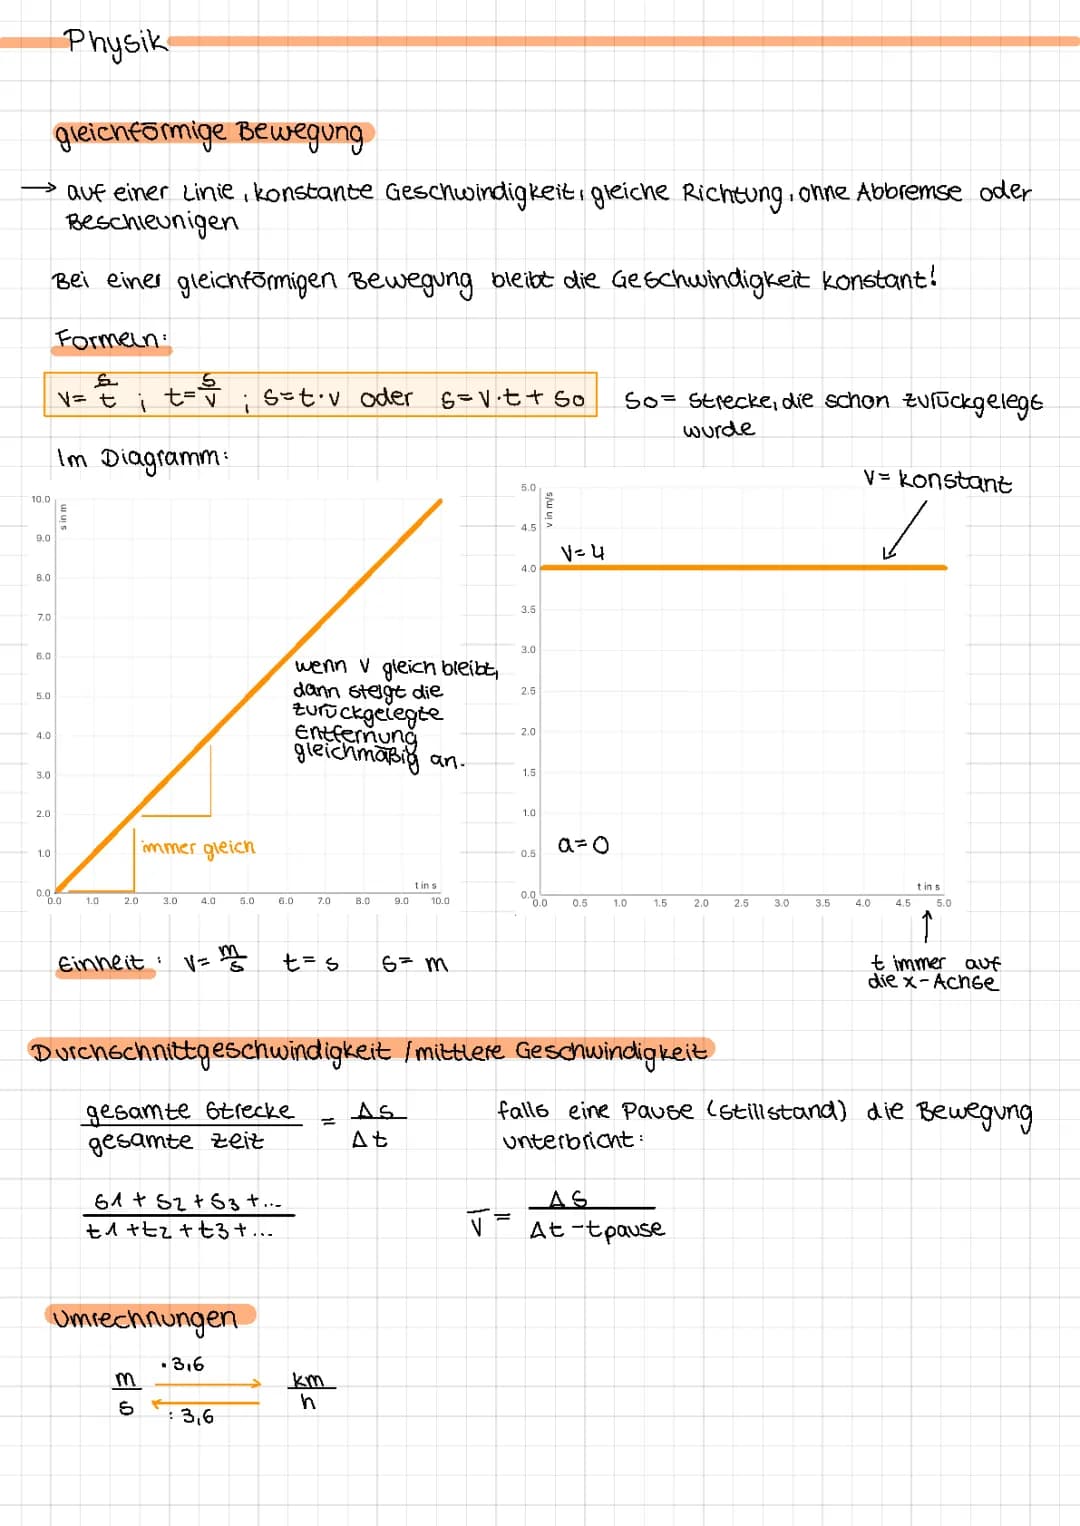 Physik
gleichförmige Bewegung
→ auf einer Linie, konstante Geschwindigkeit, gleiche Richtung, ohne Abbremse oder
Beschleunigen
Bei einer gleichförmigen Bewegung bleibt die Geschwindigkeit konstant!
Formeln:
v = s/t ; t = s/v ; s = t·v oder s = v·t + so
so = Strecke, die schon zurückgelegt
wurde
Im Diagramm:
s in m
10.0
9.0
8.0
7.0
6.0
5.0
4.0
3.0
2.0
1.0
0.0
wenn v gleich bleibt,
dann steigt die
zurückgelegte
Entfernung
gleichmäßig an.
immer gleich
t in s
0.0 1.0 2.0 3.0 4.0 5.0 6.0 7.0 8.0 9.0 10.0
v = konstant
v in m/s
5.0
4.5
v = 4
4.0
3.5
3.0
2.5
2.0
1.5
1.0
a = 0
0.5
0.0
t in s
0.0 0.5 1.0 1.5 2.0 2.5 3.0 3.5 4.0 4.5 5.0
t immer auf
die x-Achse
Einheit: v = m/s t = s s = m
Durchschnittgeschwindigkeit / mittlere Geschwindigkeit
gesamte Strecke / gesamte Zeit = Δs / Δt
falls eine Pause (Stillstand) die Bewegung
unterbricht:
s1 + s2 + s3 + ... / t1 + t2 + t3 + ...
v̅ = Δs / Δt - tpause
Umrechnungen
· 3,6
m/s km/h
: 3,6